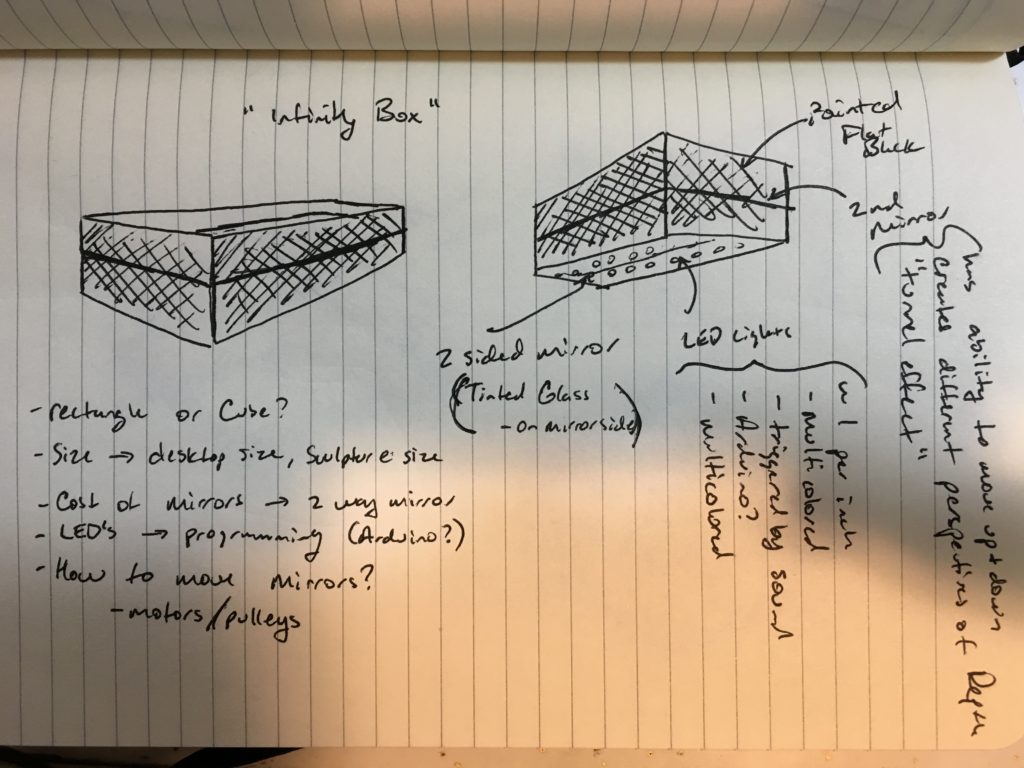 "Infinity Box"
Painted
Flat
Black
2nd
Mirror
has ability to move up + down
creates different perspectives of Depth
"tunnel effect"
LED Lights
2 sided mirror
(Tinted Glass
- on mirror side)
1 per inch
- multicolored
- triggered by sound
- Arduino?
- multicolored
- rectangle or Cube?
- Size → desktop size, Sculpture size
- Cost of mirrors → 2 way mirror
- LED's → programming (Arduino?)
- How to move mirrors?
- motors/pulleys